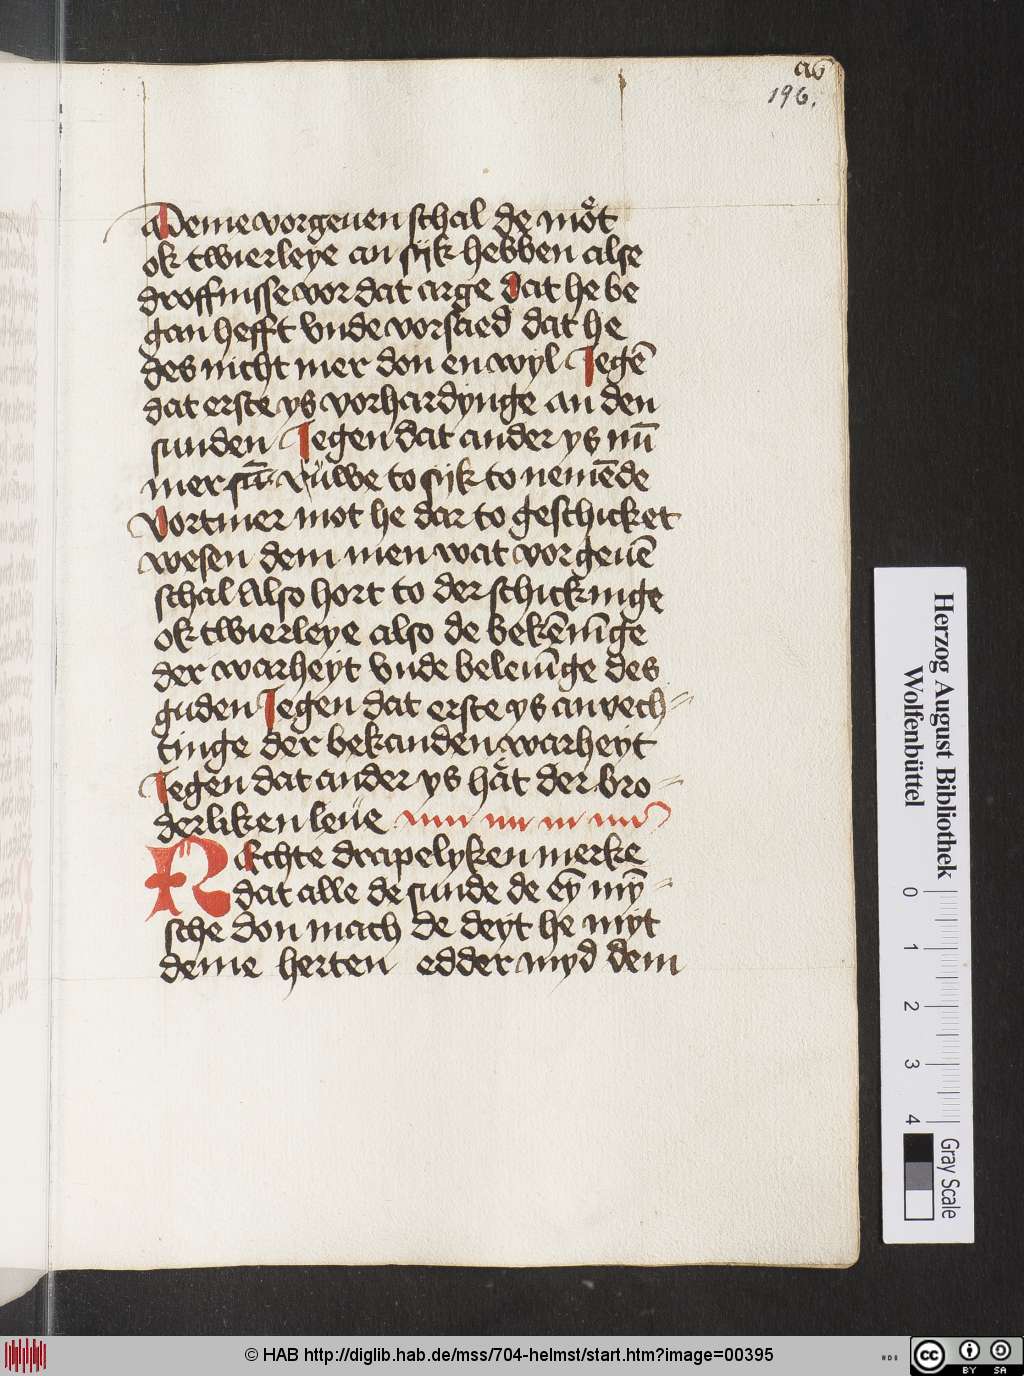 196.
Deme vorgeuen schal de moͤt
ok twierleye an sijk hebben alse
droffnisse vor dat arge dat he be
gan hefft vnde vorsaed dat he
des nicht mer don en wyl Jegē
dat erste ys vorhardynge an den
sunden Jegen dat ander ys nū
mer ruͤwe to sijk to nemēde
Vortmer mot he dar to geschicket
wesen dem men wat vorgeuē
schal Also hort to der schickinge
ok twierleye also de bekēnīge
der warheyt vnde beleuīge des
guden Jegen dat erste ys anvech⸗
tinge der bekanden warheyt
Jegen dat ander ys haͤt der bro⸗
derliken leue
REchte drapelyken merke
dat alle de sunde de eȳ mȳ⸗
sche don mach de deyt he myt
deme herten edder myd dem
Herzog August Bibliothek
Wolfenbüttel
0 1 2 3 4
Gray Scale
© HAB http://diglib.hab.de/mss/704-helmst/start.htm?image=00395
cc BY SA